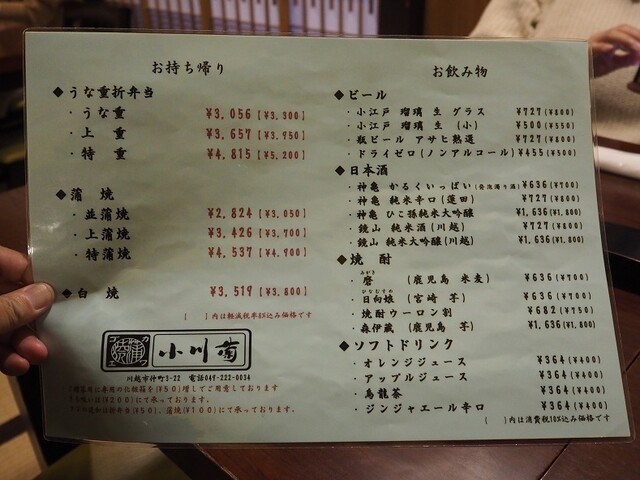 お持ち帰り
◆うな重折弁当
・うな重 ¥3,056【¥3,300】
・上 重 ¥3,657【¥3,950】
・特 重 ¥4,815【¥5,200】
◆蒲 焼
・並蒲焼 ¥2,824【¥3,050】
・上蒲焼 ¥3,426【¥3,700】
・特蒲焼 ¥4,537【¥4,900】
◆白 焼 ¥3,519【¥3,800】
【 】内は軽減税率8%込み価格です
小川菊
川越市仲町3-22 電話049-222-0034
お飲み物
◆ビール
・小江戸 瑠璃 生 グラス ¥727(¥800)
・小江戸 瑠璃 生 (小) ¥500(¥550)
・瓶ビール アサヒ熟選 ¥727(¥800)
・ドライゼロ(ノンアルコール) ¥455(¥500)
◆日本酒
・神亀 かるくいっぱい(発泡濁り酒) ¥636(¥700)
・神亀 純米辛口(蓮田) ¥727(¥800)
・神亀 ひこ孫純米大吟醸 ¥1,636(¥1,800)
・鏡山 純米酒(川越) ¥727(¥800)
・鏡山 純米大吟醸(川越) ¥1,636(¥1,800)
◆焼 酎
・磨 (鹿児島 米麦) ¥636(¥700)
・日向娘 (宮崎 芋) ¥636(¥700)
・焼酎ウーロン割 ¥682(¥750)
・森伊蔵 (鹿児島 芋) ¥1,636(¥1,800)
◆ソフトドリンク
・オレンジジュース ¥364(¥400)
・アップルジュース ¥364(¥400)
・烏龍茶 ¥364(¥400)
・ジンジャエール辛口 ¥364(¥400)
( )内は消費税10%込み価格です